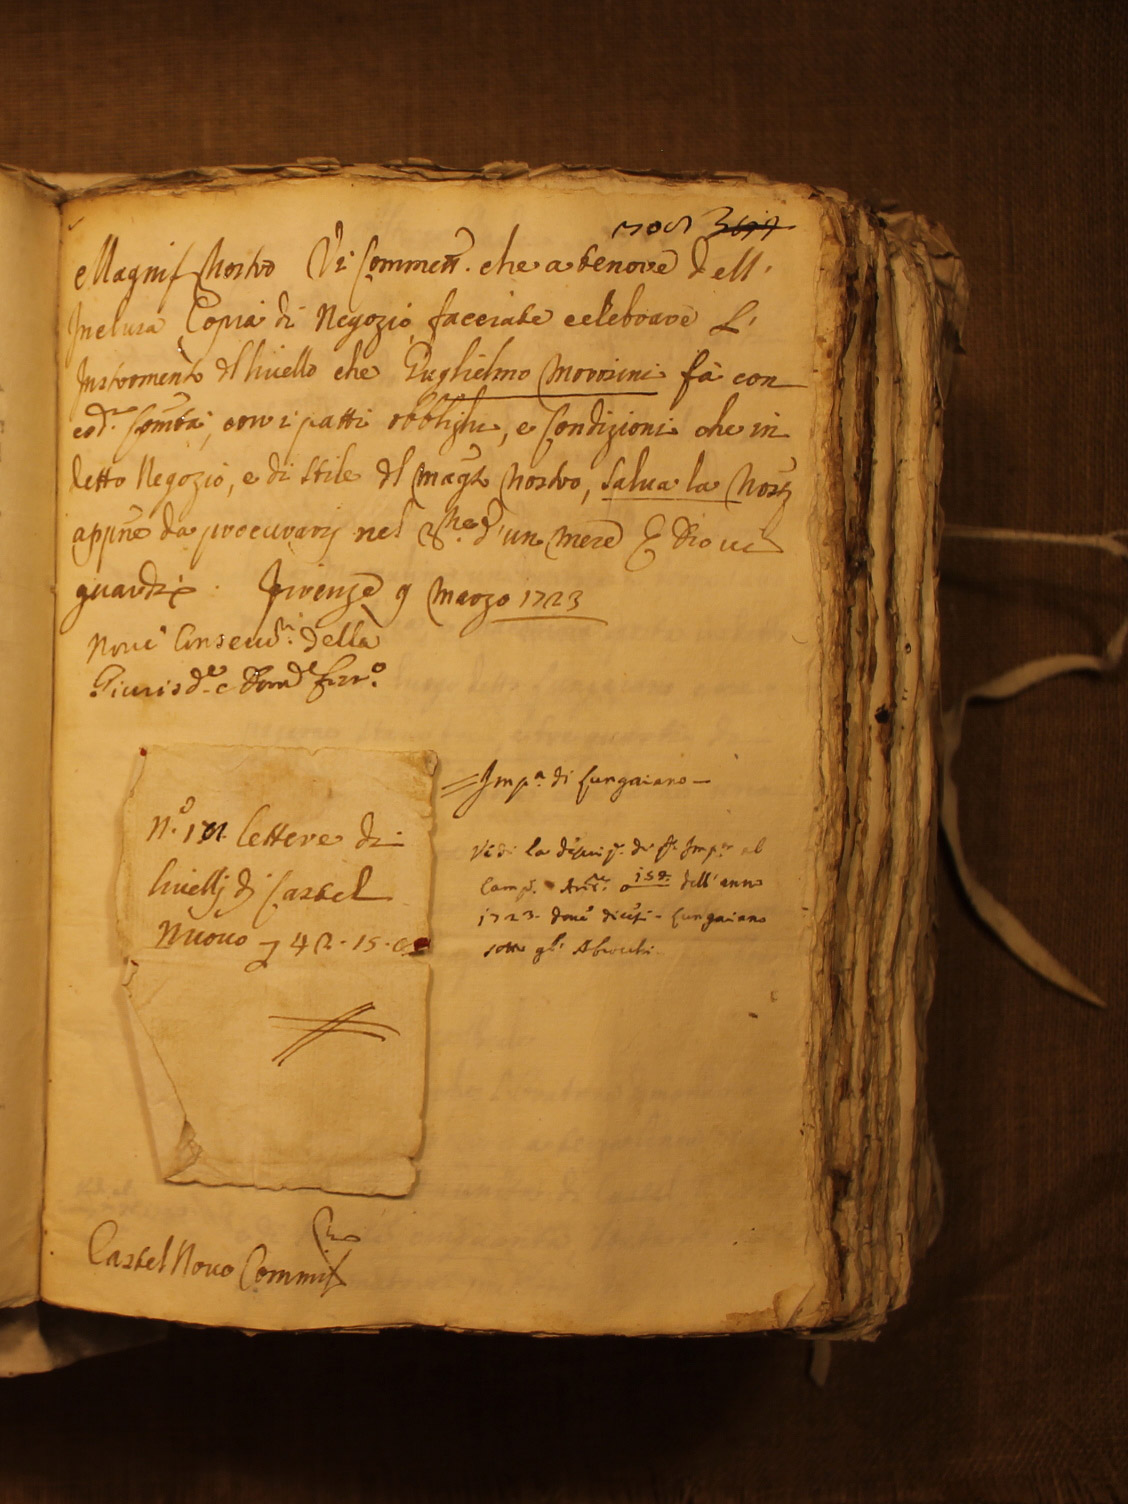 Magnif. Nostro Vi Commett. che a tenore dell'
Inclusa Copia di Negozio facciate celebrare L'
Instromento dl livello che Guglielmo Morosini fà con
cod.a Comba, con i patti obblighi, e Condizioni che in
detto Negozio, e di stile dl Mag.to Nostro, salva la Nostr
appne da procurarsj nel d'un mese E Dio vi
guardi. Firenze 9 Marzo 1723
Novi Conserv.ri della
Giurisd.e e Dom.e Fior.o
N.o 101 lettere di
livellj di Castel
Nuovo 42.15.
Imp.a di Lungaiano
Vedi la di Imp.a al
Camp. 159 dell'anno
1723. dove dicesi Lungaiano
sotto gl'
Castel Novo Commiss